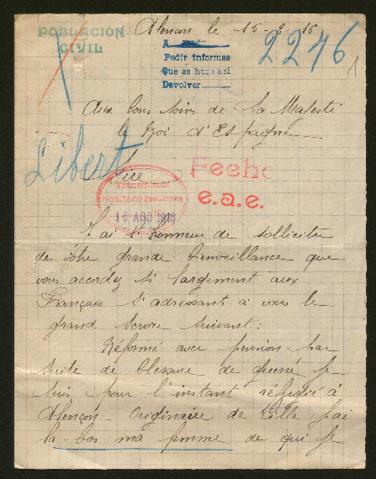 POBLACIÓN
CIVIL
Alençon le 15-
2276
1
Pedir informes
Que se haga así
Devolver
Aux bons soins de Sa Majesté
le Roi d'Espagne
Libert
Sire
Fecho
e.a.e.
Transmitido
16 AGO 1918
J'ai l'honneur de solliciter
de votre grande bienveillance que
vous accordez si largement aux
Français s'adressant à vous le
grand service suivant:
Réformé avec pension par
suite de blessure de guerre je
suis pour l'instant réfugié à
Alençon Originaire de Lille j'ai
là-bas ma femme de qui je